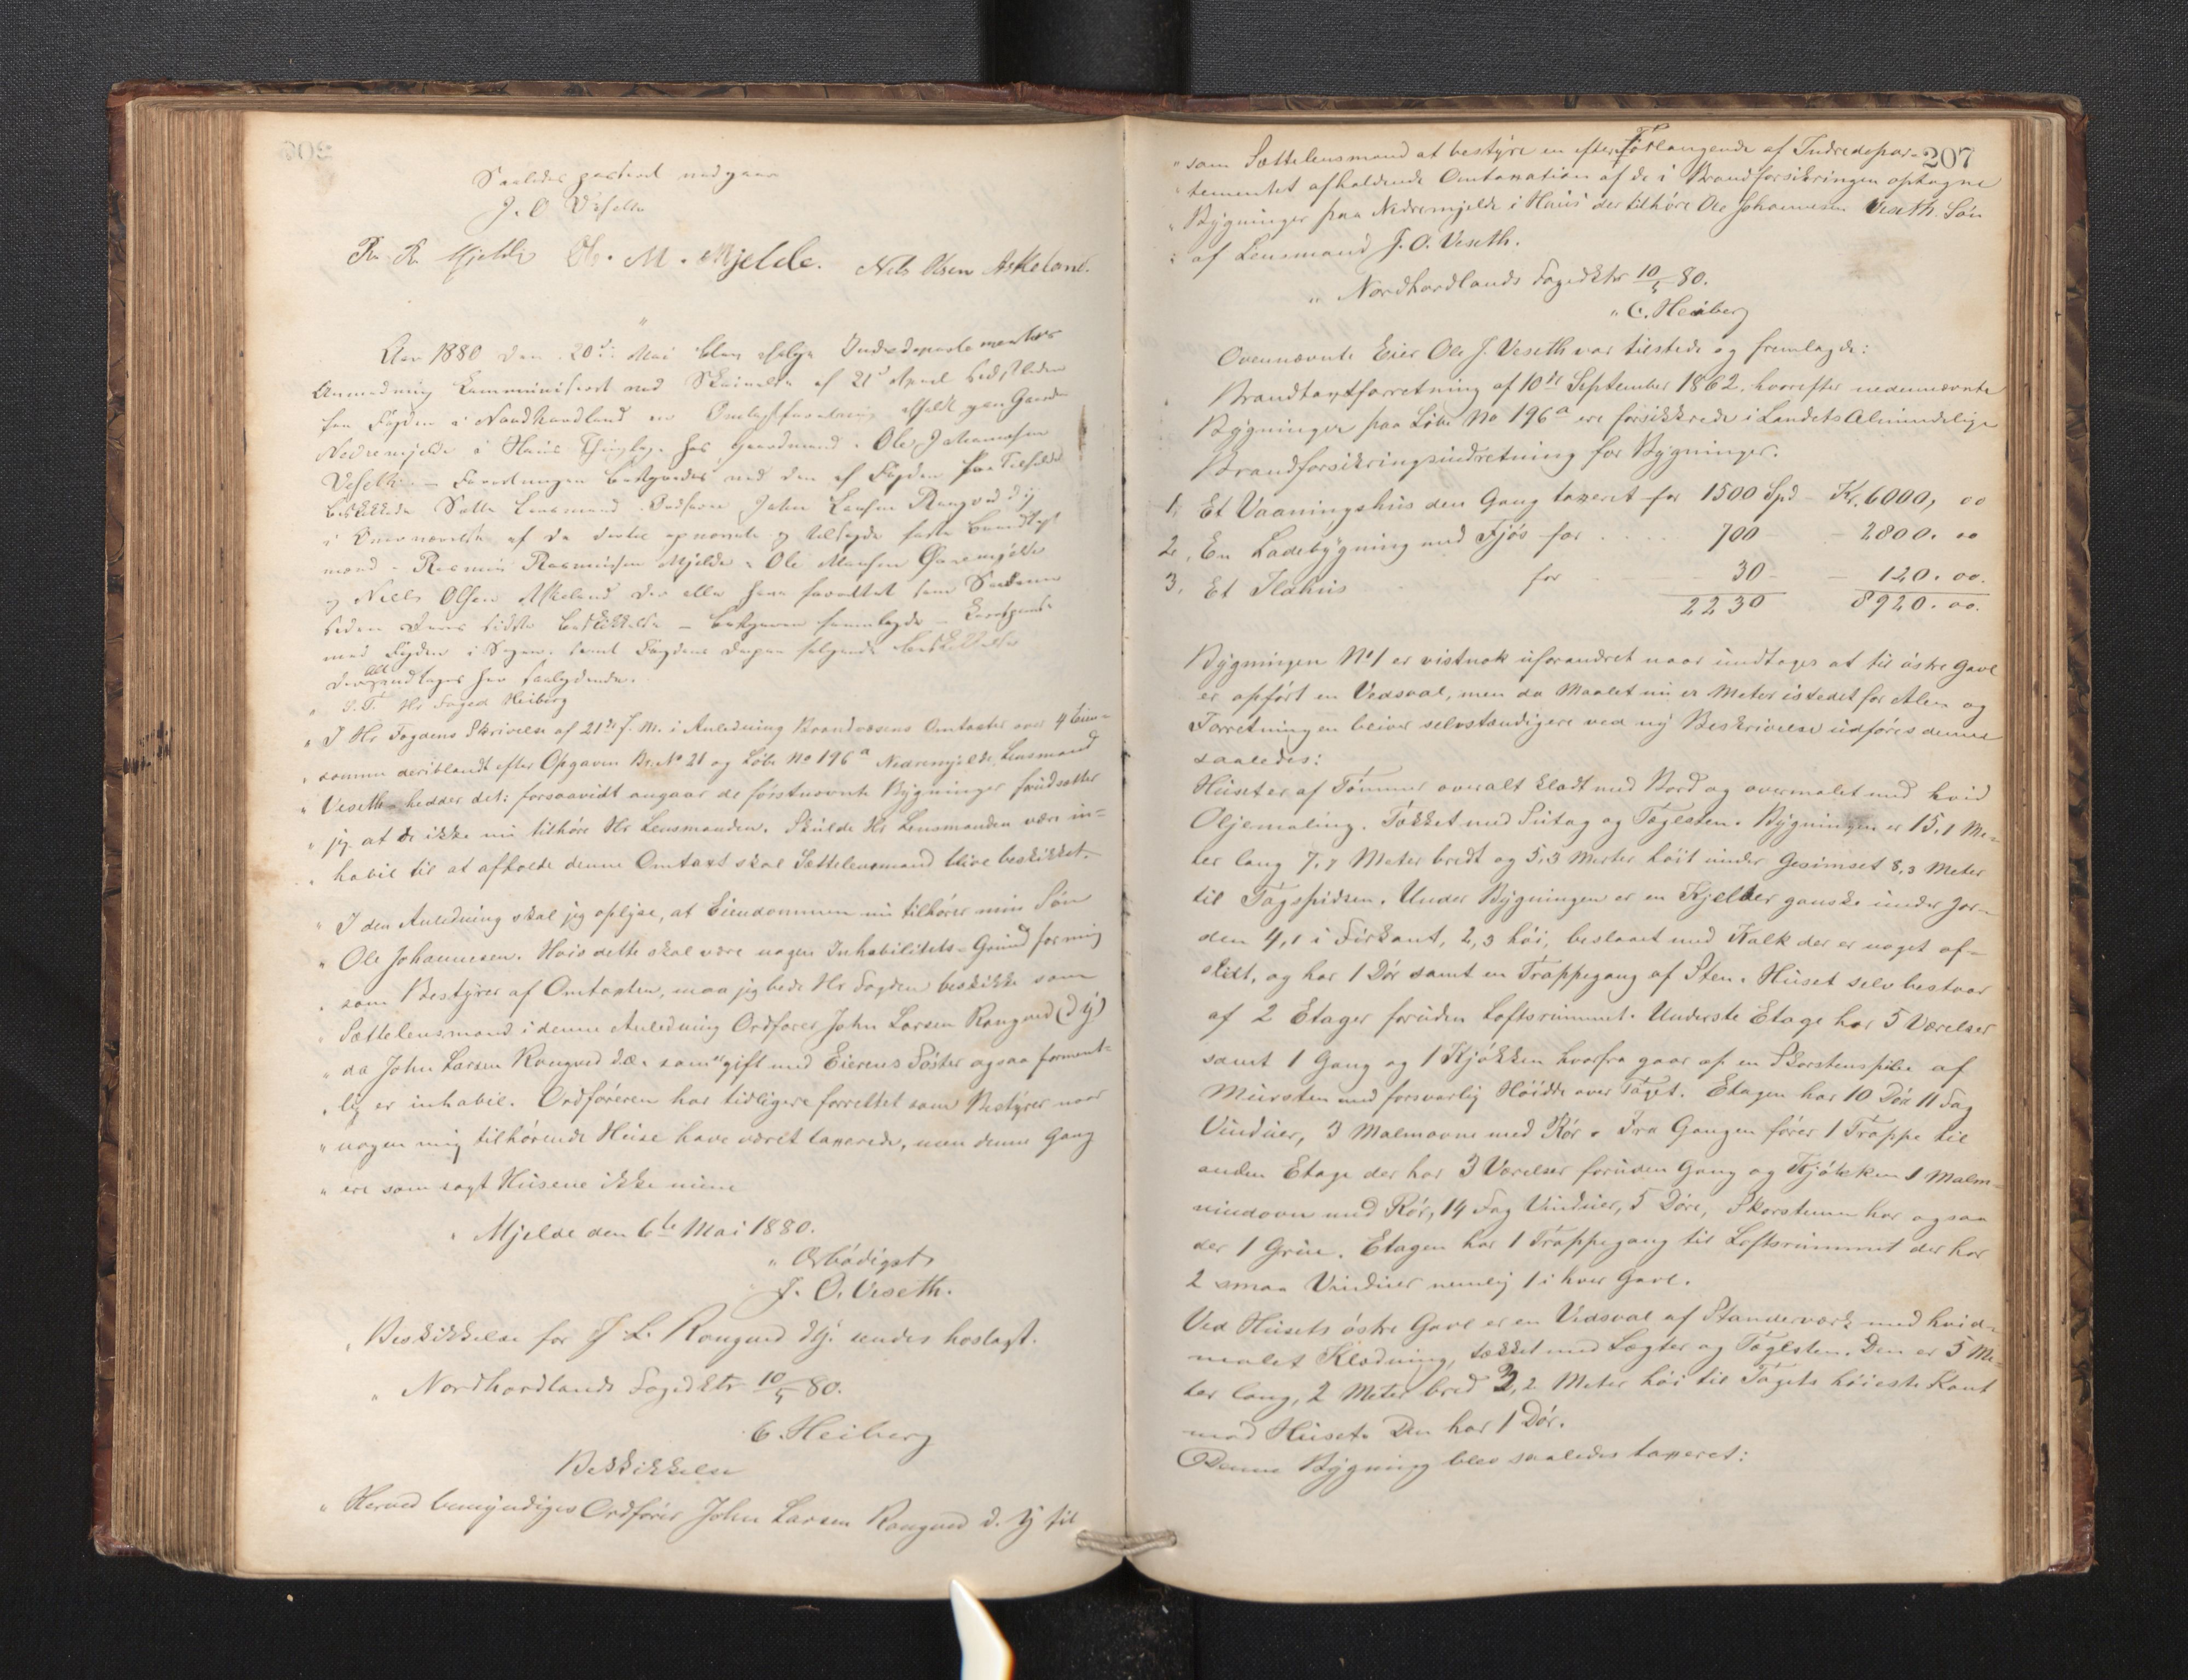 Saaledes passeret medgaar
J. O. Veseth
R. R. Mjelde Ole. M. Mjelde. Nils Olsen Askeland.
Aar 1880 den 20de Mai blev ifølge Indredepartementets
Anmodning kommuniseret ved Skrivelse af 21de April sidstleden
fra Fogden i Nordhordland en Omtaxtforretning afholdt paa Gaarden
Nedremjelde i Haus Thinglag hos Gaardmand Ole Johannesen
Veseth. – Forretningen bestyredes ved den af Fogden paa Tilfælde
beskikkede Sætte Lensmand Ordfører John Larsen Rongved d.y.
i Overværelse af de dertil opnævnte og tilsagde faste Brandtaxt
mænd – Rasmus Rasmussen Mjelde, Ole Monsen Øvremjelde
og Niels Olsen Askeland der alle have forrettet som Saadanne
siden deres sidste Beskikkelse – Bestyreren fremlagde –
med Fogden i Sogn. samt Fogdens derpaa følgende Beskikkelse
der alle indtages her saalydende.
" S. T. Hr Foged Heiberg
" I Hr Fogdens Skrivelse af 21de f. M. i Anledning Brandvæsens Omtaxter over 4 Eien-
" domme deriblandt efter Opgaven Br. No 21 og Løbe No 196a Nedremjelde Lensmand
" Veseth – hedder det: forsaavidt angaar de førstnævnte Bygninger forudsætter
" jeg at de ikke nu tilhøre Hr Lensmanden. Skulde Hr Lensmanden være in-
" habil til at afholde denne Omtaxt skal Sættelensmand blive beskikket. –
" I den Anledning skal jeg oplyse, at Eiendommen nu tilhører min Søn
" Ole Johannesen. Hvis dette skal være nogen Inhabilitets-Grund for mig
" som Bestyrer af Omtaxten, maa jeg bede Hr Fogden beskikke som
" Sættelensmand i denne Anledning Ordfører John Larsen Rongved (d y)
" da John Larsen Rongved d.æ. som er gift med Eierens Søster ogsaa forment-
" lig er inhabil. Ordføreren har tidligere forrettet som Bestyrer naar
" nogen mig tilhørende Huse have været taxerede, men denne Gang
" ere som sagt Husene ikke mine
" Mjelde den 6te Mai 1880.
" Ærbødigst
J. O. Veseth.
" Beskikkelse for J. L. Rongved d.y. sendes hoslagt.
" Nordhordlands Fogedktr 10/5 80.
C. Heiberg
Beskikkelse
" Herved bemyndiges Ordfører John Larsen Rongved d. y til
207
" som Sættelensmand at bestyre en efter Forlangende af Indredepar-
" tementet afholdende Omtaxation af de i Brandforsikringen optagne
" Bygninger paa Nedremjelde i Haus der tilhøre Ole Johannesen Veseth Søn
" af Lensmand J. O. Veseth.
" Nordhordlands Fogedktr 10/5 80.
" C. Heiberg
Ovennævnte Eier Ole J. Veseth var tilstede og fremlagde:
Brandtaxtforretning af 10de September 1862. hvorefter nedennævnte
Bygninger paa Løbe No 196a ere forsikkrede i Landets Almindelige
Brandforsikringsindretning for Bygninger.
1, Et Vaaningshus den Gang taxeret for 1500 Spd – Kr. 6000, 00
2, En Ladebygning med Fjøs for . . . . 700 – 2800. 00
3, Et Ildhus for 30 – 120. 00.
2230 8920. 00.
Bygningen No 1 er vistnok uforandret naar undtages at til østre Gavl
er opført en Vedsval, men da Maalet nu er Meter istedet for Alen og
Forretningen bliver selvstændigere ved ny Beskrivelse udføres denne
saaledes:
Huset er af Tømmer overalt klædt med Bord og overmalet med hvid
Oljemaling. Tækket med Sutag og Taglsten. Bygningen er 15,1 Me-
ter lang 7,7 Meter bredt og 5,3 Meter høit under Gesimset 8,3 Meter
til Tagspidsen. Under Bygningen er en Kjelder ganske under Jor-
den 4,1 i Firkant, 2,3 høi, beslaaet med Kalk der er noget af-
slidt, og har 1 Dør samt en Trappegang af Sten. Huset selv bestaar
af 2 Etager foruden Loftsrummet. Underste Etage har 5 Værelser
samt 1 Gang og 1 Kjøkken hvorfra gaar op en Skorstenspibe af
Mursten med forsvarlig Høide over Taget. Etagen har 10 Døre 11 Fag
Vinduer, 3 Malmovne med Rør. Fra Gangen fører 1 Trappe til
anden Etage der har 3 Værelser foruden Gang og Kjøkken 1 Malm-
vindovn med Rør, 14 Fag Vinduer, 5 Døre, Skorstenen har ogsaa
der 1 Grue. Etagen har 1 Trappegang til Loftsrummet der har
2 smaa Vinduer nemlig 1 i hver Gavl.
Ved Husets østre Gavl er en Vedsval af Standerværk med hvid-
malet Klædning, tækket med Lægter og Taglsten. Den er 5 Me-
ter lang, 2 Meter bred 3,2 Meter høi til Tagets høieste Kant
mod Huset. Den har 1 Dør.
Denne Bygning blev saaledes taxeret: